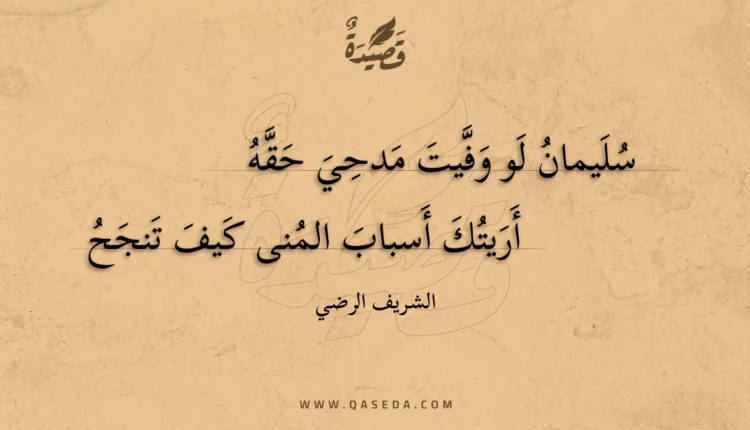 قَصِيْدَةٌ
سُلَيمانُ لَو وَفَّيتَ مَدحِيَ حَقَّهُ
أَرَيتُكَ أَسبابَ المُنى كَيفَ تَنجَحُ
الشريف الرضي
WWW.QASEDA.COM